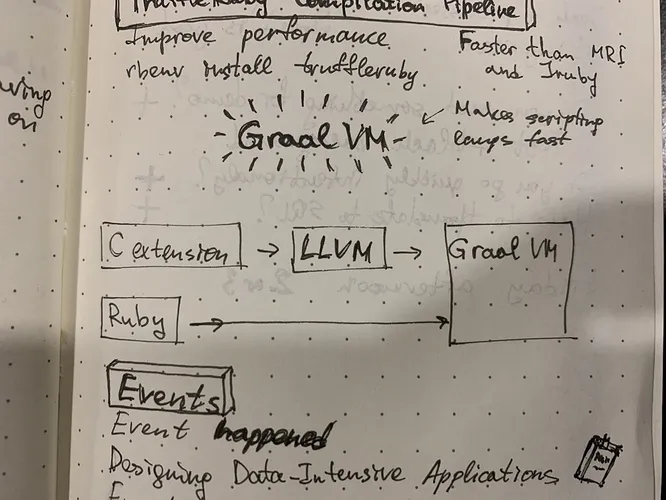 TruffleRuby Compilation Pipeline
Improve performance
rbenv install truffleruby
Faster than MRI
and Jruby
Graal VM
Makes scripting
langs fast
C extension
LLVM
Graal VM
Ruby
Events
Event happened
Designing Data-Intensive Applications
ving
on